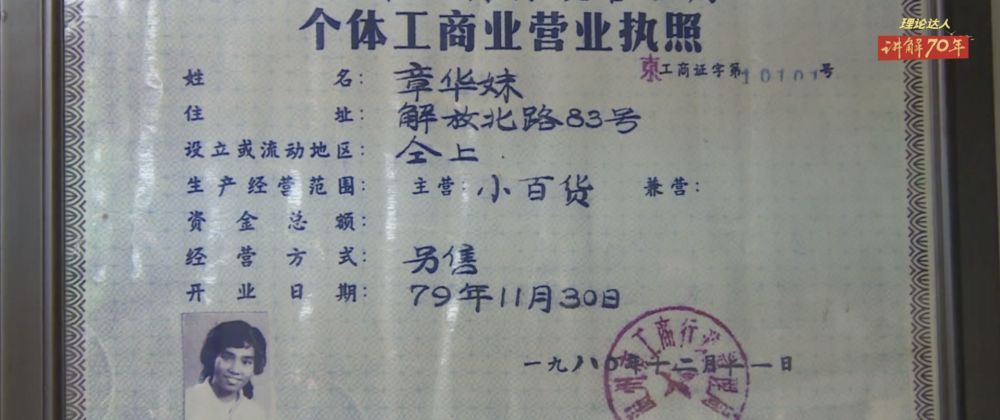 理论达人
讲解70年
个体工商业营业执照
东工商证字第10101号
姓 名：章华妹
住 址：解放北路83号
设立或流动地区：仝上
生产经营范围：主营：小百货 兼营：
资金总额：
经营方式：另售
开业日期：79年11月30日
一九八〇年十二月十一日